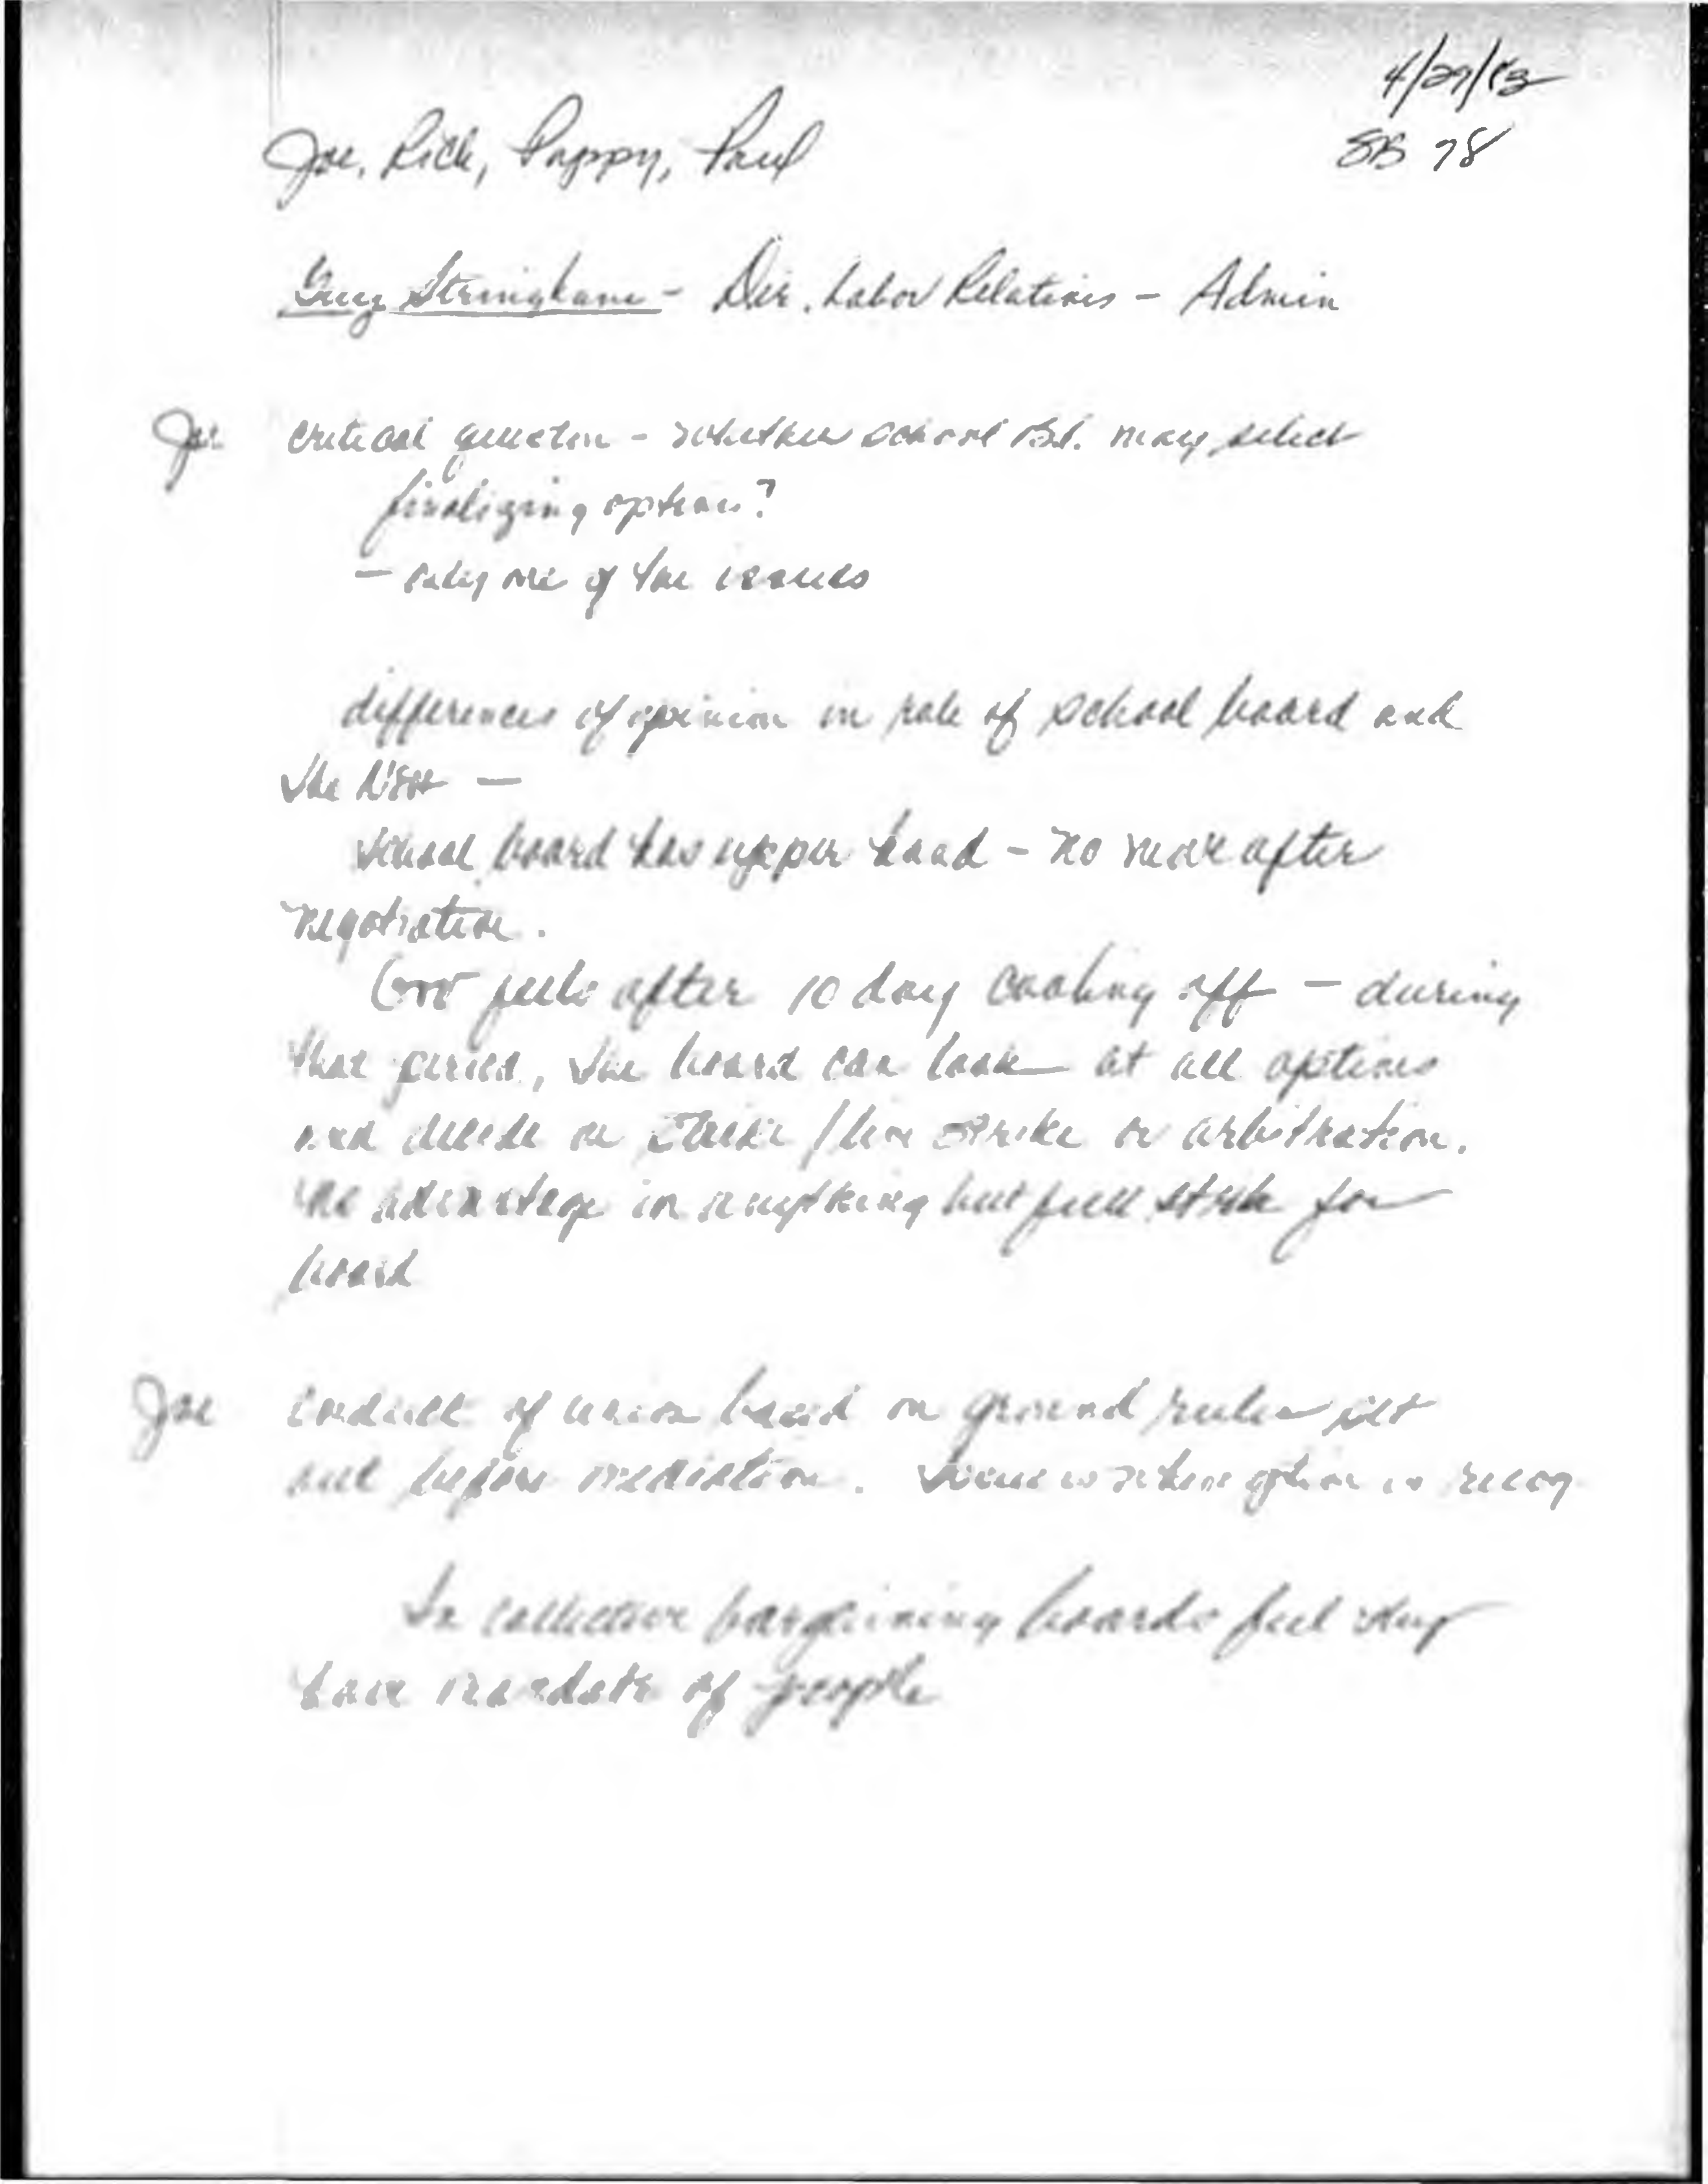 4/29/83
SB 78
Joe, Rich, Pappy, Paul
Stringham - Dir. Labor Relations - Admin
Joe critical question - whether school Bd. may select
finalizing option?
- only one of the issues
differences of opinion in role of school board and
the
School board has upper hand - no more after
negotiation.
Gov feels after 10 day cooling off - during
that period, the board can look at all options
and decide on strike or arbitration.
no advantage in anything but full strike for
board
Joe conduct of union based on ground rules set
out before mediation. option is
In collective bargaining boards feel they
have mandate of people